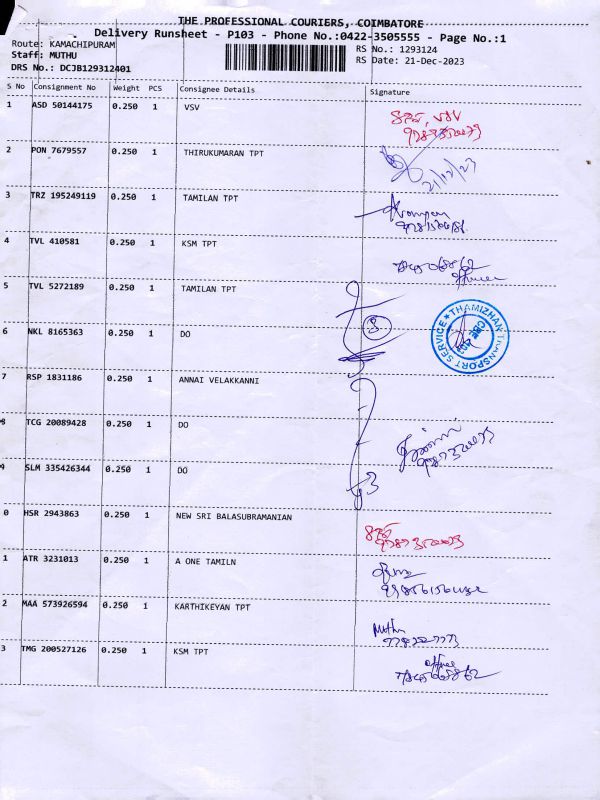 THE PROFESSIONAL COURIERS, COIMBATORE
Delivery Runsheet - P103 - Phone No.:0422-3505555 - Page No.:1
Route: KAMACHIPURAM RS No.: 1293124
Staff: MUTHU RS Date: 21-Dec-2023
DRS No.: DCJB129312401
S No Consignment No Weight PCS Consignee Details Signature
1 ASD 50144175 0.250 1 VSV
2 PON 7679557 0.250 1 THIRUKUMARAN TPT
21/12/23
3 TRZ 195249119 0.250 1 TAMILAN TPT
4 TVL 410581 0.250 1 KSM TPT
office
5 TVL 5272189 0.250 1 TAMILAN TPT
THAMIZHAN TRANSPORT SERVICE ★ CBE
6 NKL 8165363 0.250 1 DO
7 RSP 1831186 0.250 1 ANNAI VELAKKANNI
8 TCG 20089428 0.250 1 DO
9 SLM 335426344 0.250 1 DO
0 HSR 2943863 0.250 1 NEW SRI BALASUBRAMANIAN
1 ATR 3231013 0.250 1 A ONE TAMILN
2 MAA 573926594 0.250 1 KARTHIKEYAN TPT
Muthu
3 TMG 200527126 0.250 1 KSM TPT
office